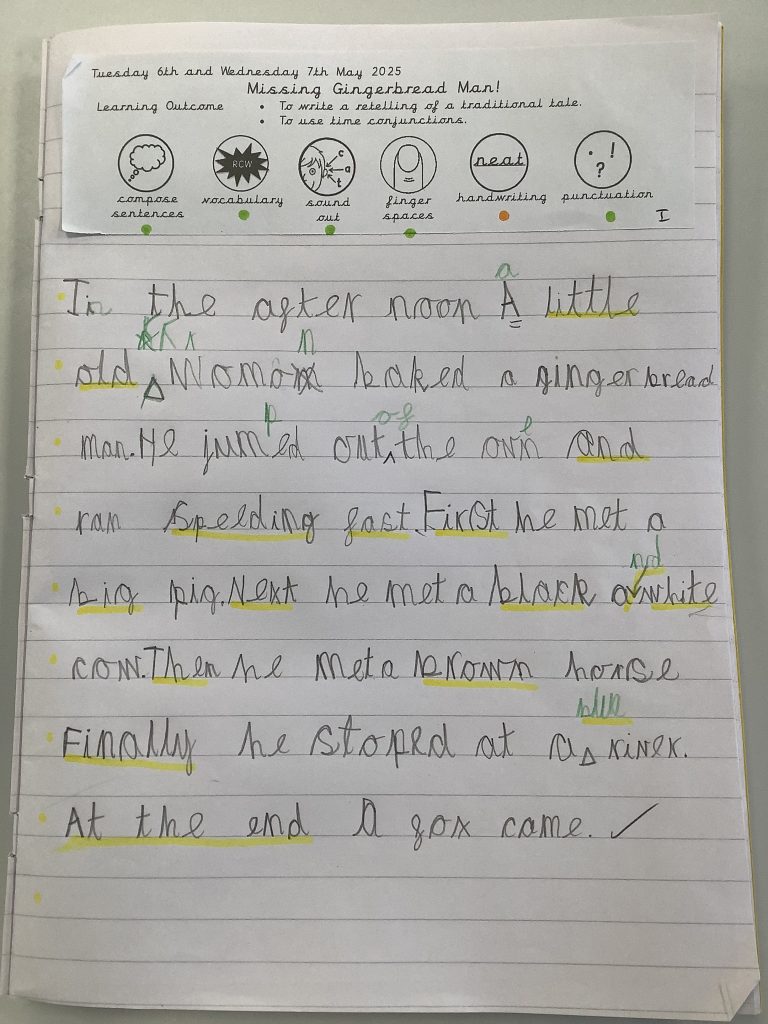 Tuesday 6th and Wednesday 7th May 2025
Missing Gingerbread Man!
Learning Outcome • To write a retelling of a traditional tale.
• To use time conjunctions.
RCW c a t neat . ! ?
compose sentences vocabulary sound out finger spaces handwriting punctuation I
a
In the after noon A little
n
old Woman baked a gingerbread
p of e
man. He jumed out the ovn and
ran speeding fast. First he met a
nd
big pig. Next he met a black a white
cow. Then he met a brown horse
blue
Finally he stoped at a river.
At the end A fox came.